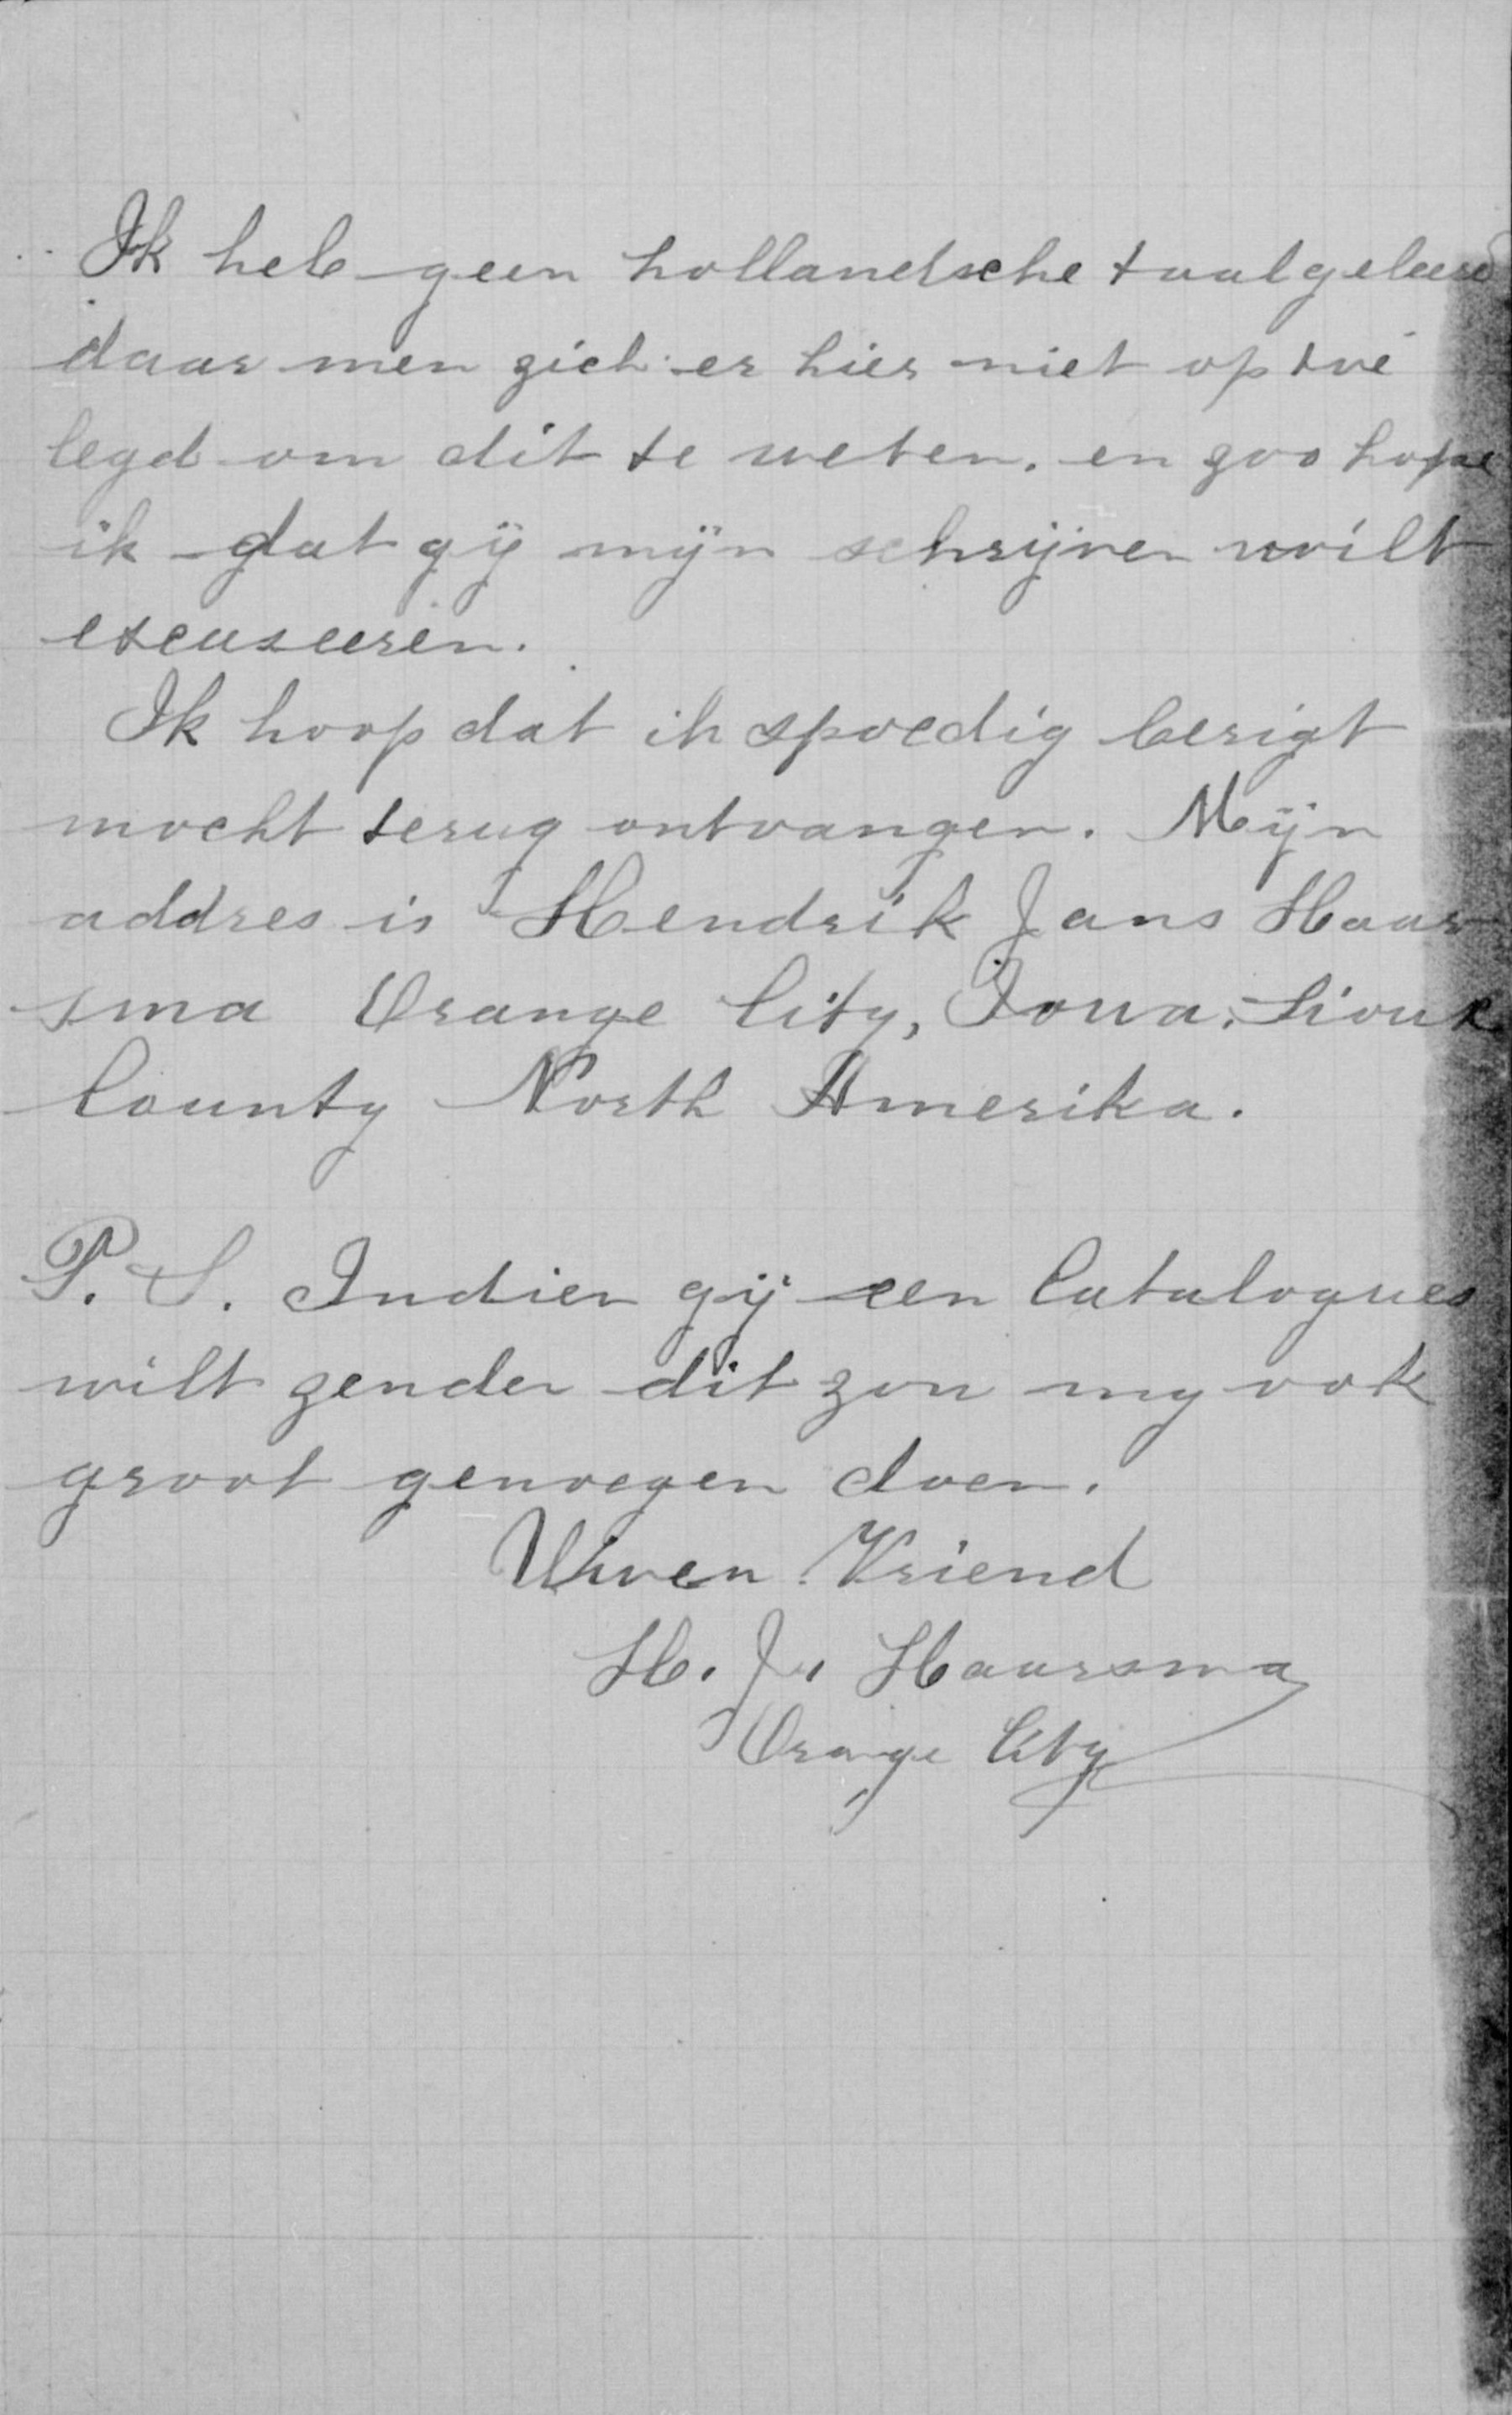 Ik heb geen hollandsche taal geleerd
daar men zich er hier niet op toe
legd om dit te weten. en zoo hope
ik dat gij mijn schrijven wilt
excuseeren.
Ik hoop dat ik spoedig berigt
mocht terug ontvangen. Mijn
addres is Hendrik Jans Haar
sma Orange City, Iowa, Sioux
County North Amerika.
P. S. Indien gij een Catalogues
wilt zenden dit zou my ook
groot genoegen doen.
Uwen Vriend
H. J. Haarsma
Orange City